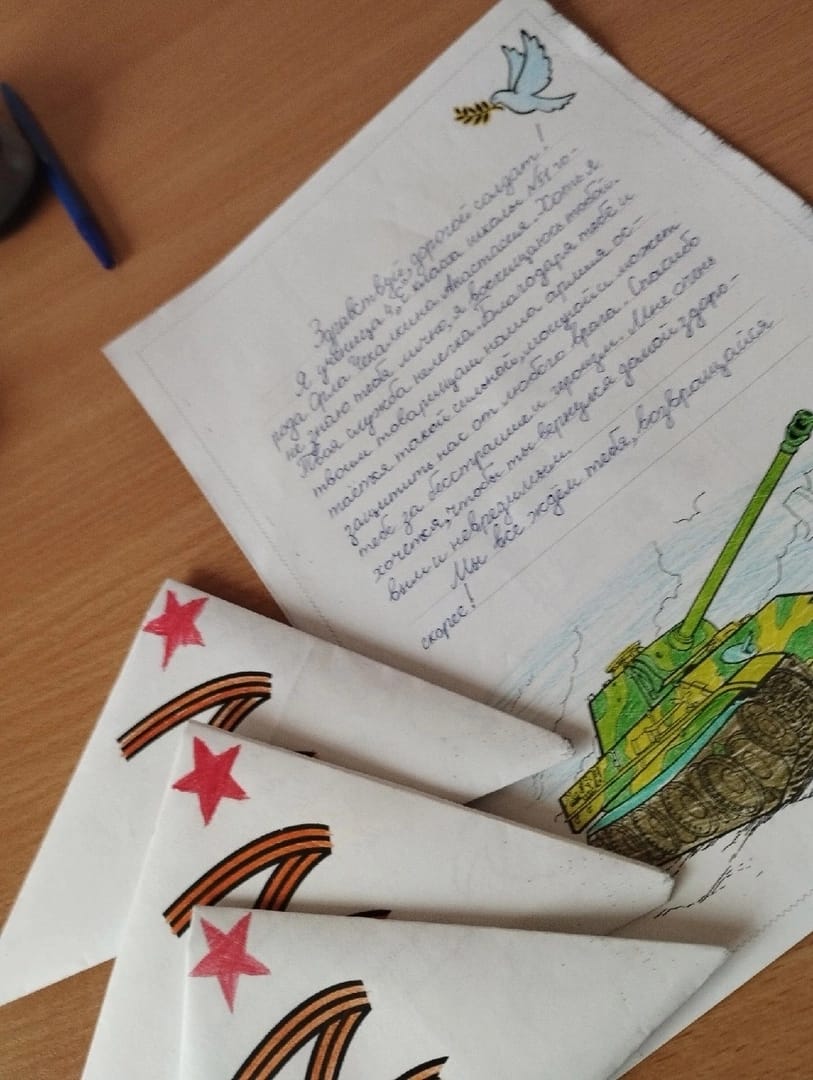 Здравствуй, дорогой солдат!
Я ученица 4 „Е" класса школы №51 го-
рода Орла Чекалкина Анастасия. Хоть я
не знаю тебя лично, я восхищаюсь тобой.
Твоя служба нелегка. Благодаря тебе и
твоим товарищам наша армия ос-
таётся такой сильной, мощной и может
защитить нас от любого врага. Спасибо
тебе за бесстрашие и героизм. Мне очень
хочется, чтобы ты вернулся домой здоро-
вым и невредимым.
Мы все ждём тебя, возвращайся
скорее!